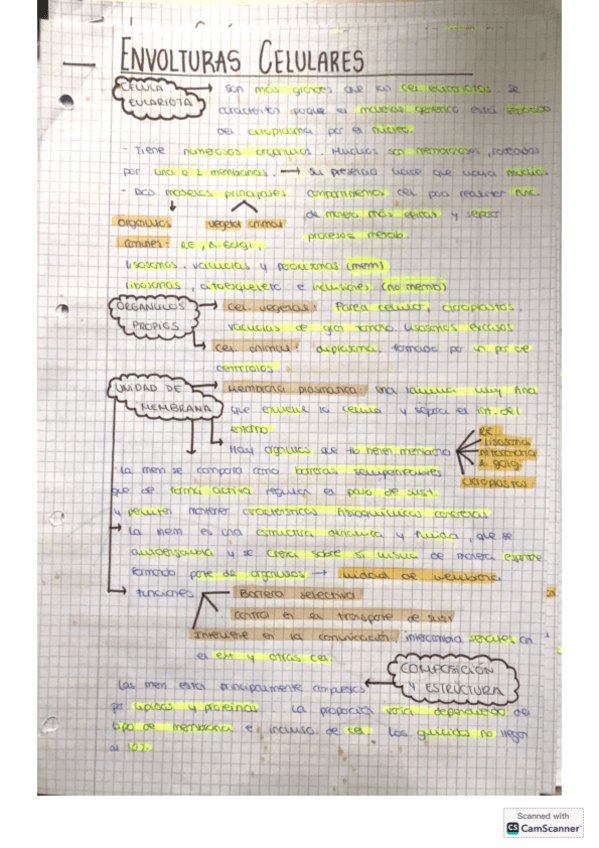 ENVOLTURAS CELULARES
CÉLULA EUCARIOTA → son más grandes que las cel eucariotas. Se
caracterizan porque el material genético está separado
del citoplasma por el núcleo.
- Tiene numerosos orgánulos. Muchos son membranosos, rodeados
por una o 2 membranas. → su presencia hace que haya muchos
- Dos modelos principales compartimentos cel para realizar func.
de manera más eficaz y separar
orgánulos vegetal animal procesos metab.
comunes: RE, A. Golgi,
lisosomas, vacuolas y peroxisomas (mem)
ribosomas, citoesqueleto e inclusiones (no memb)
ORGÁNULOS PROPIOS → cel. vegetal: Pared celular, cloroplastos,
vacuolas de gran tamaño. Lisosomas escasos
→ cel. animal: diplosoma, formado por un par de
centriolos
UNIDAD DE MEMBRANA → membrana plasmática: una lámina muy fina
que envuelve la célula y separa el int. del
entorno.
→ Hay orgánulos que tienen membrana
RE
Lisosoma
Mitocondria
A. golgi
cloroplastos
La mem se comporta como barreras semipermeables
que de forma activa regulan el paso de sust.
y permiten mantener características fisicoquímicas concretas
→ La mem es una estructura dinámica y fluida, que se
autoensambla y se cierra sobre sí misma de manera
formando parte de orgánulos → unidad de membrana.
→ funciones
Barrera selectiva
Control en el transporte de sust
Interviene en la comunicación: intercambia señales con
el ext y otras cel.
COMPOSICIÓN Y ESTRUCTURA
Las mem están principalmente compuestas
por lípidos y proteínas. La proporción varía dependiendo del
tipo de membrana e incluso de cel. Los glúcidos no llegan
al 10%.
Scanned with
CS CamScanner